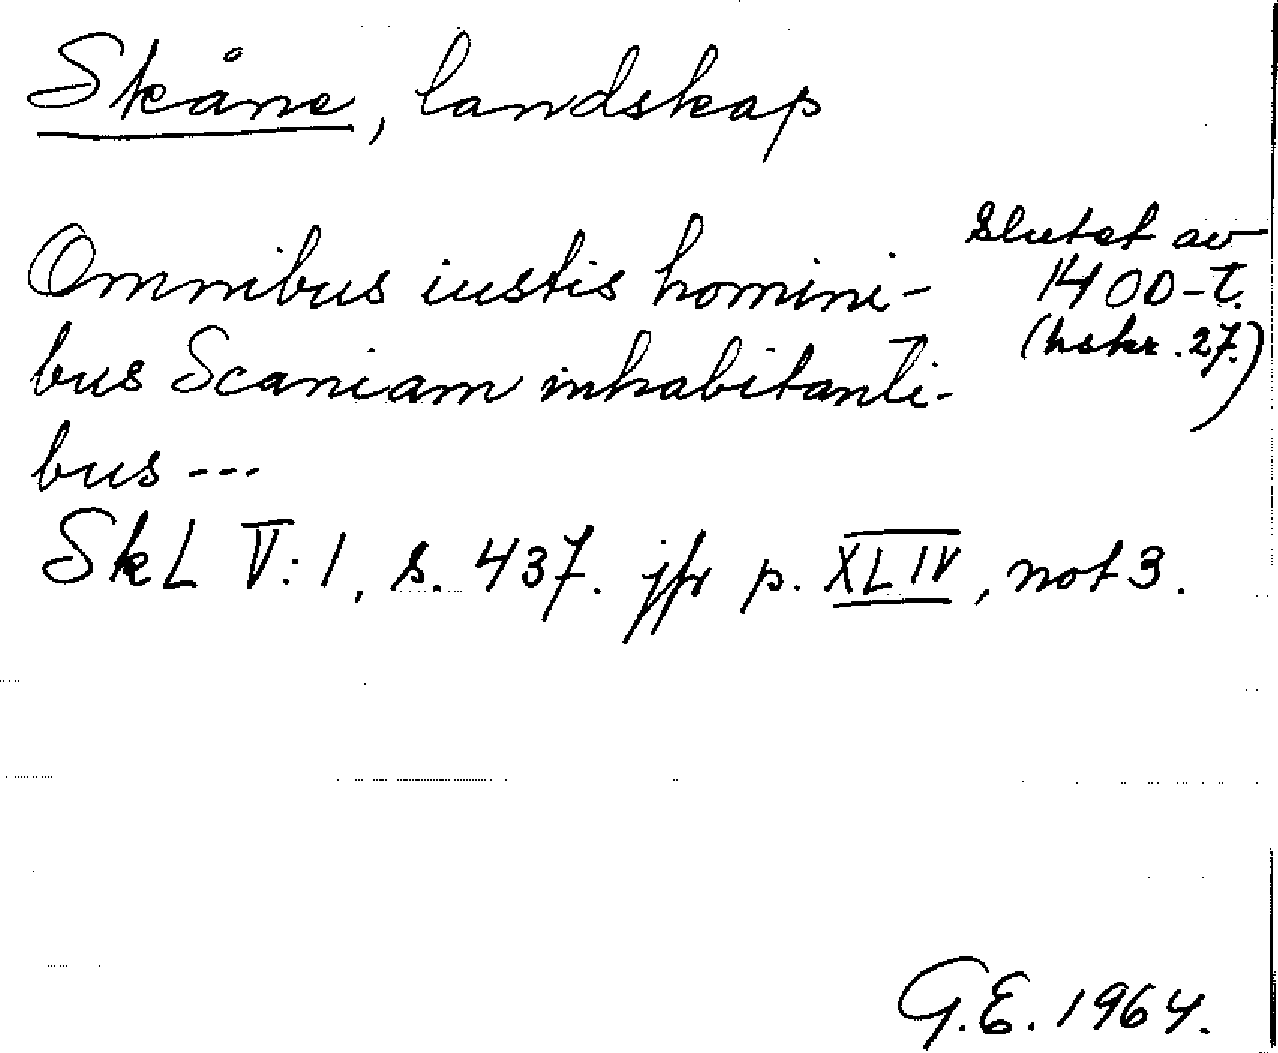 Skåne, landskap
Slutet av
1400-t.
(hskr. 27.)
Omnibus iustis homini-
bus Scaniam inhabitanti-
bus ---
SkL V:1, s. 437. jfr p. XLIV, not 3.
G.E. 1964.